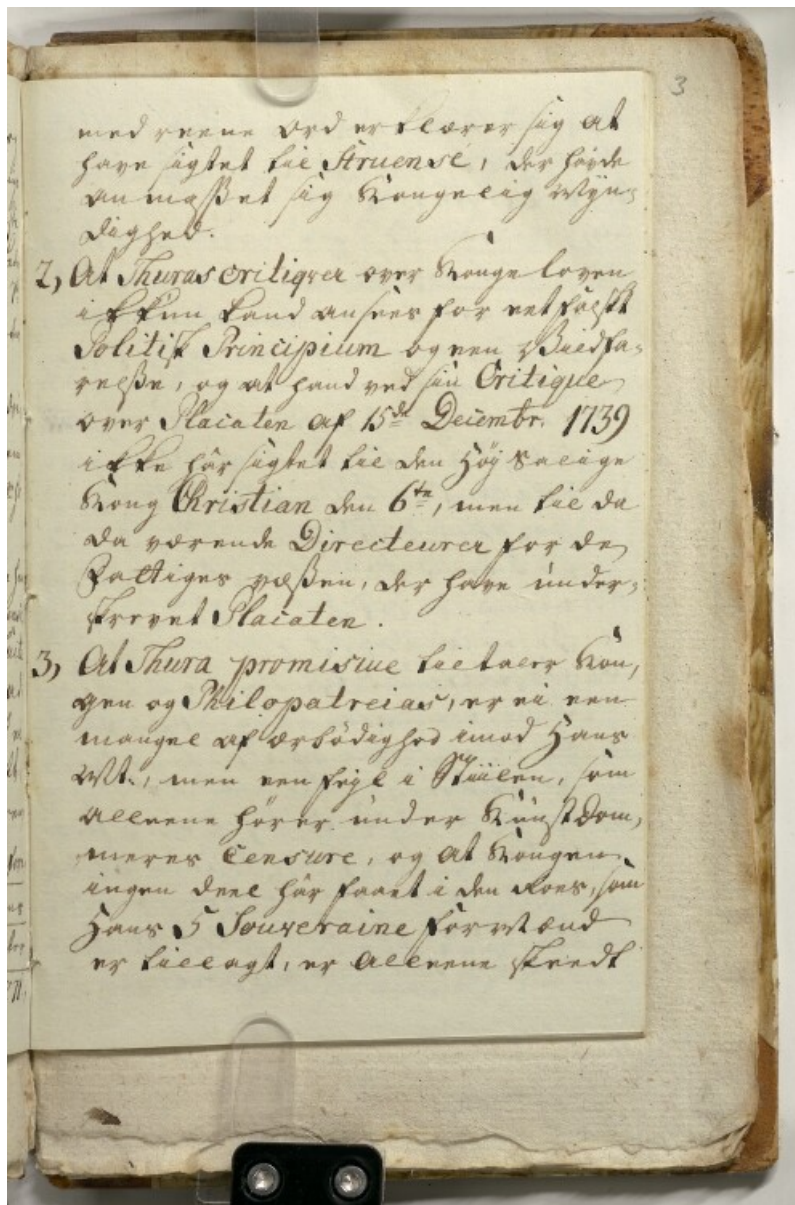 3
med reene Ord erklærer sig at
have sigtet til Struensé, der havde
anmasset sig Kongelig Myn-
dighed.
2, At Thuras critiqver over Kongeloven
ikkun kand ansees for eet falskt
Politisk Principium og een Vildfa-
relse, og at hand ved sin Critique
over Placaten af 15de Decembr. 1739
ikke har sigtet til den Høy Salige
Kong Christian den 6te, men til da
da værende Directeurer for de
Fattiges væsen, der have under-
skrevet Placaten.
3, At Thura promisiue tiltaler Kon,
gen og Philopatreias, er ei een
mangel af ærbödighed imod Hans
Mt., men een feyl i Stiilen, som
alleene hører under Kunst Dom,
meres Censure, og at Kongen
ingen deel har faaet i den Roes, som
Hans 5 Souveraine Formænd
er tillagt, er alleene skeedt